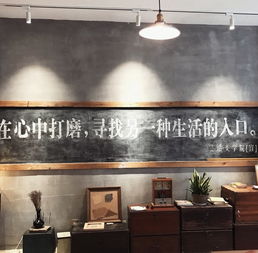 在心中打磨，寻找另一种生活的入口。